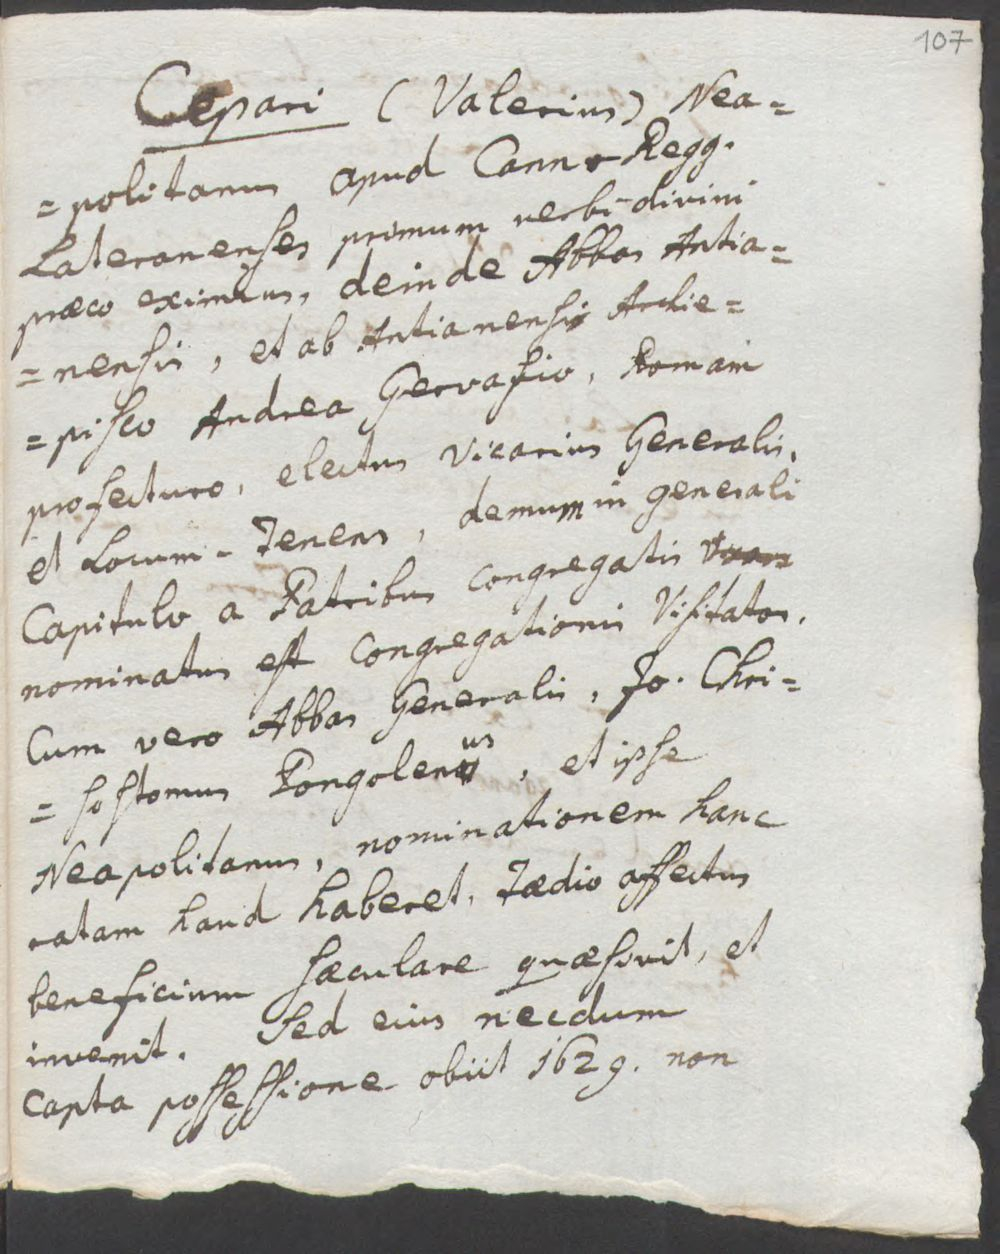 107
Cepari (Valerius) Nea=
=politanus apud Cann. Regg.
Lateranenses primum verbi divini
præco eximius, deinde Abbas Antia=
=nensis, et ab Antianensi Archie=
=pisco Andrea Gervasio, Romam
profecturo, electus Vicarius Generalis,
et Locum-Tenens, demum in generali
Capitulo a Patribus congregatis
nominatus est Congregationis Visitator.
Cum vero Abbas Generalis, Jo. Chri=
=sostomus Pongolenus, et ipse
Neapolitanus, nominationem hanc
ratam haud haberet, Tædio affectus
beneficium sæculare quæsivit, et
invenit. Sed eius necdum
capta possessione obiit 1629. non